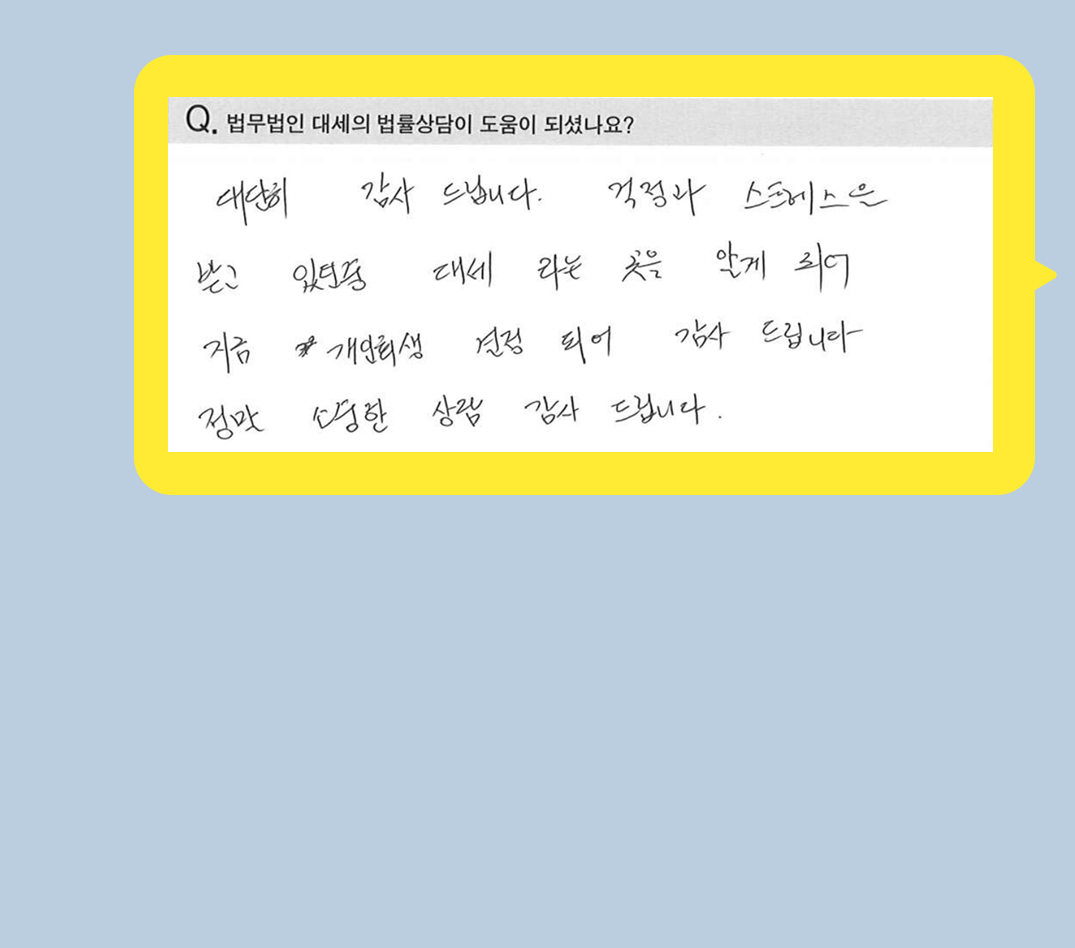 Q. 법무법인 대세의 법률상담이 도움이 되셨나요?
대단히 감사 드립니다. 걱정과 스트레스은
받고 있던중 대세 라는 곳을 알게 되어
지금 개인회생 결정 되어 감사 드립니다
정말 상담 감사 드립니다.